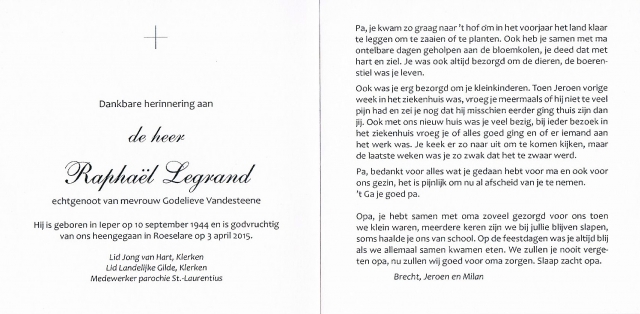 Dankbare herinnering aan
de heer
Raphaël Legrand
echtgenoot van mevrouw Godelieve Vandesteene
Hij is geboren in Ieper op 10 september 1944 en is godvruchtig
van ons heengegaan in Roeselare op 3 april 2015.
Lid Jong van Hart, Klerken
Lid Landelijke Gilde, Klerken
Medewerker parochie St.-Laurentius
Pa, je kwam zo graag naar 't hof om in het voorjaar het land klaar
te leggen om te zaaien of te planten. Ook heb je samen met ma
ontelbare dagen geholpen aan de bloemkolen, je deed dat met
hart en ziel. Je was ook altijd bezorgd om de dieren, de boeren-
stiel was je leven.
Ook was je erg bezorgd om je kleinkinderen. Toen Jeroen vorige
week in het ziekenhuis was, vroeg je meermaals of hij niet te veel
pijn had en zei je nog dat hij misschien eerder ging thuis zijn dan
jij. Ook met ons nieuw huis was je veel bezig, bij ieder bezoek in
het ziekenhuis vroeg je of alles goed ging en of er iemand aan
het werk was. Je keek er zo naar uit om te komen kijken, maar
de laatste weken was je zo zwak dat het te zwaar werd.
Pa, bedankt voor alles wat je gedaan hebt voor ma en ook voor
ons gezin, het is pijnlijk om nu al afscheid van je te nemen.
't Ga je goed pa.
Opa, je hebt samen met oma zoveel gezorgd voor ons toen
we klein waren, meerdere keren zijn we bij jullie blijven slapen,
soms haalde je ons van school. Op de feestdagen was je altijd blij
als we allemaal samen kwamen eten. We zullen je nooit verge-
ten opa, nu zullen wij goed voor oma zorgen. Slaap zacht opa.
Brecht, Jeroen en Milan